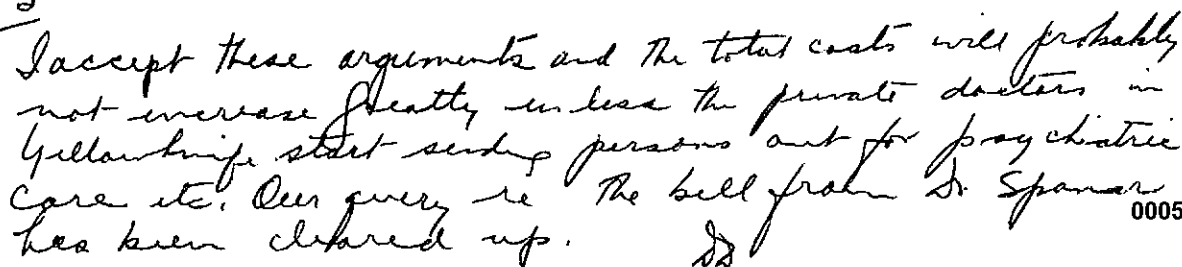 3
I accept these arguments and the total costs will probably
not increase greatly unless the private doctors in
Yellowknife start sending persons out for psychiatric
care etc. Our query re the bill from Dr. Spaner
0005
has been cleared up.